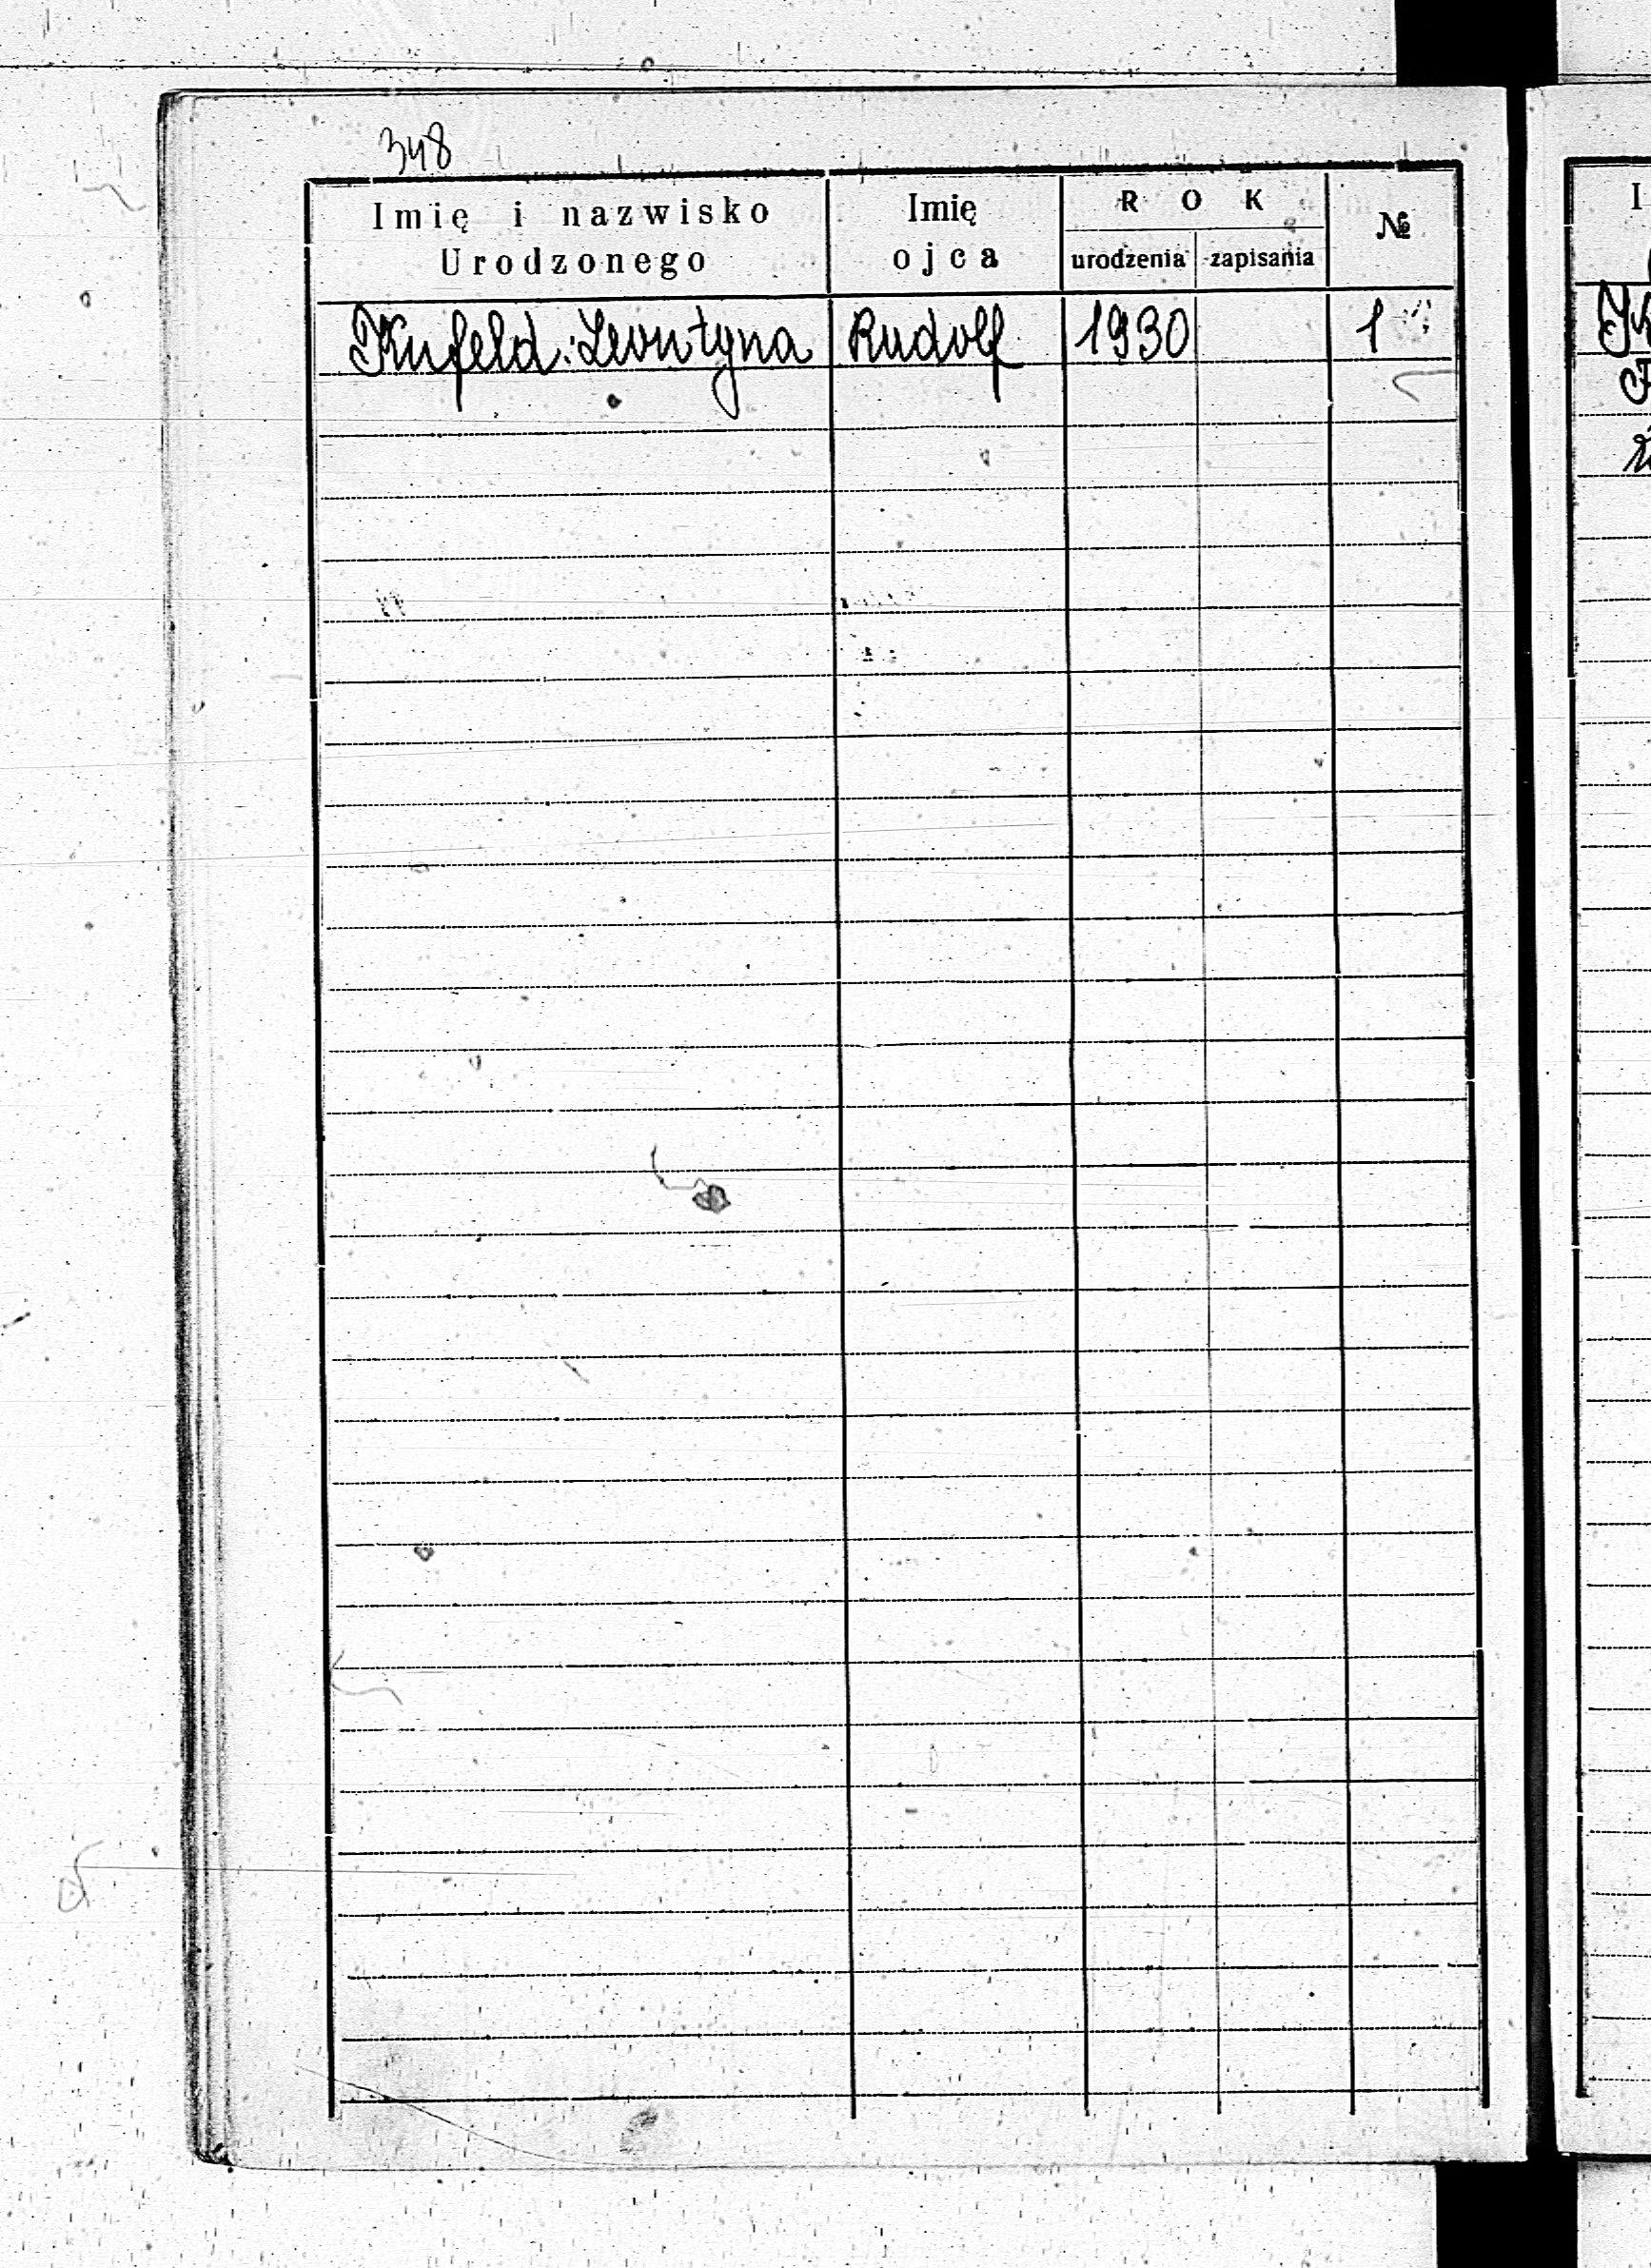 348
Imię i nazwisko Urodzonego
Imię ojca
ROK
urodzenia zapisania
№
Kufeld Leontyna Rudolf 1930 1